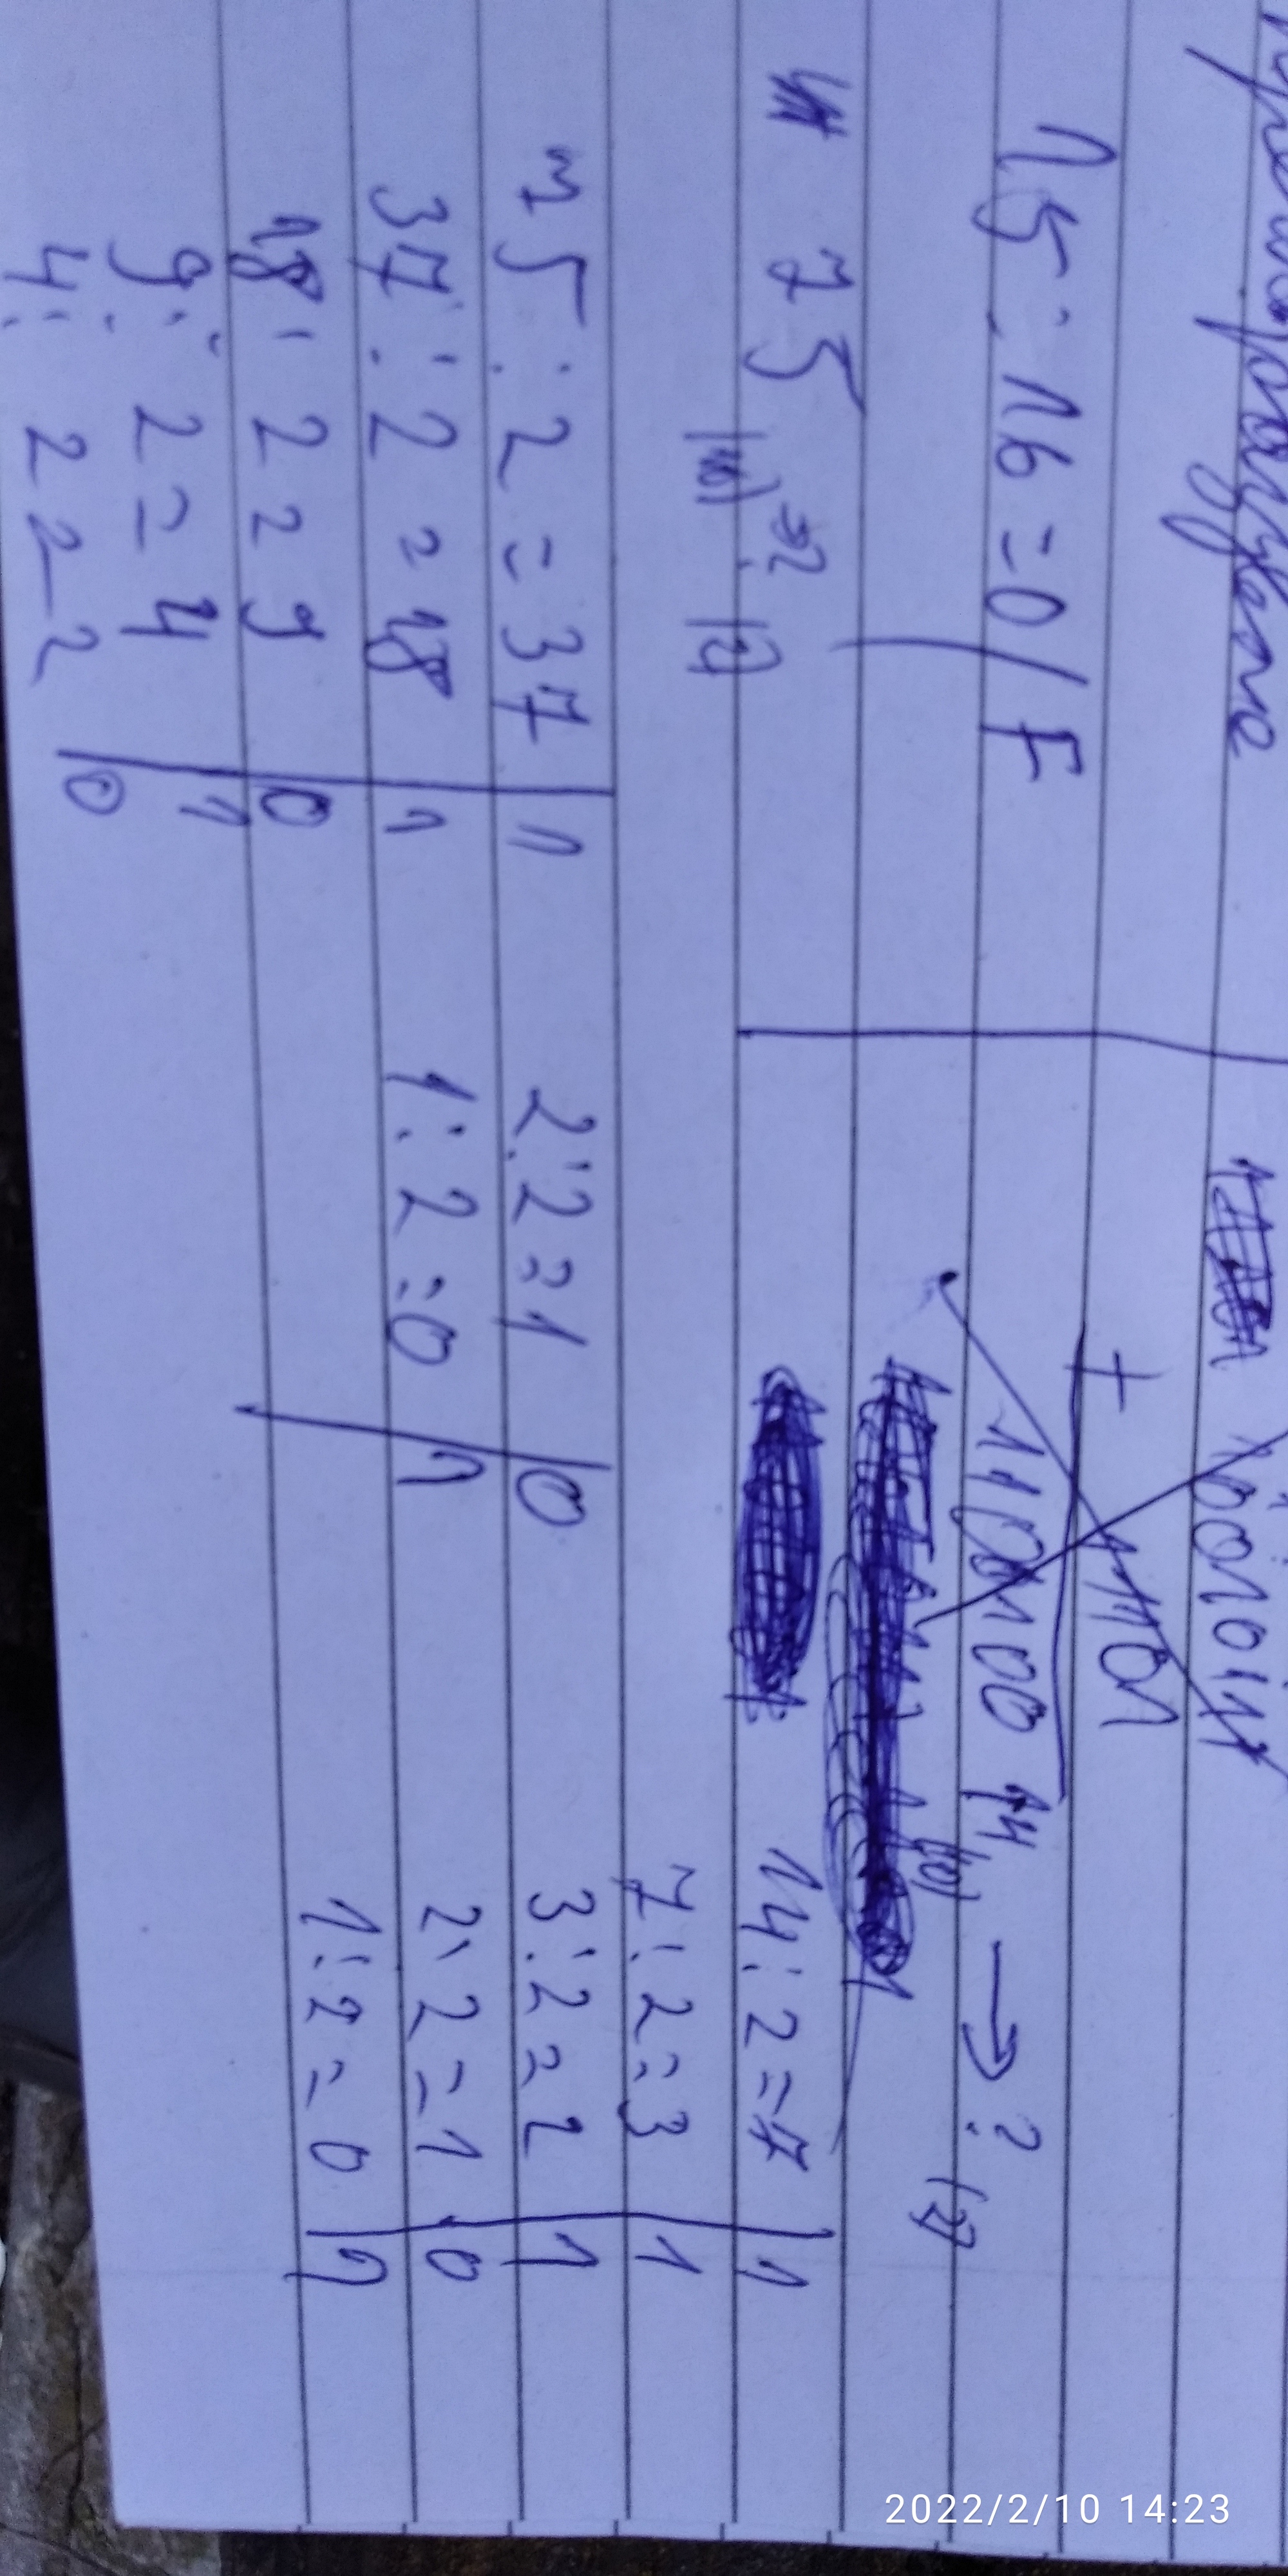 15 : 16 = 0 / F
75 (10) → ? (2)
75 : 2 = 37 | 1
37 : 2 = 18 | 1
18 : 2 = 9 | 0
9 : 2 = 4 | 1
4 : 2 = 2 | 0
2 : 2 = 1 | 0
1 : 2 = 0 | 1
+ 1101
1100100
14 (10) → ? (2)
14 : 2 = 7 | 1
7 : 2 = 3 | 1
3 : 2 = 2 | 1
2 : 2 = 1 | 0
1 : 2 = 0 | 1
2022/2/10 14:23